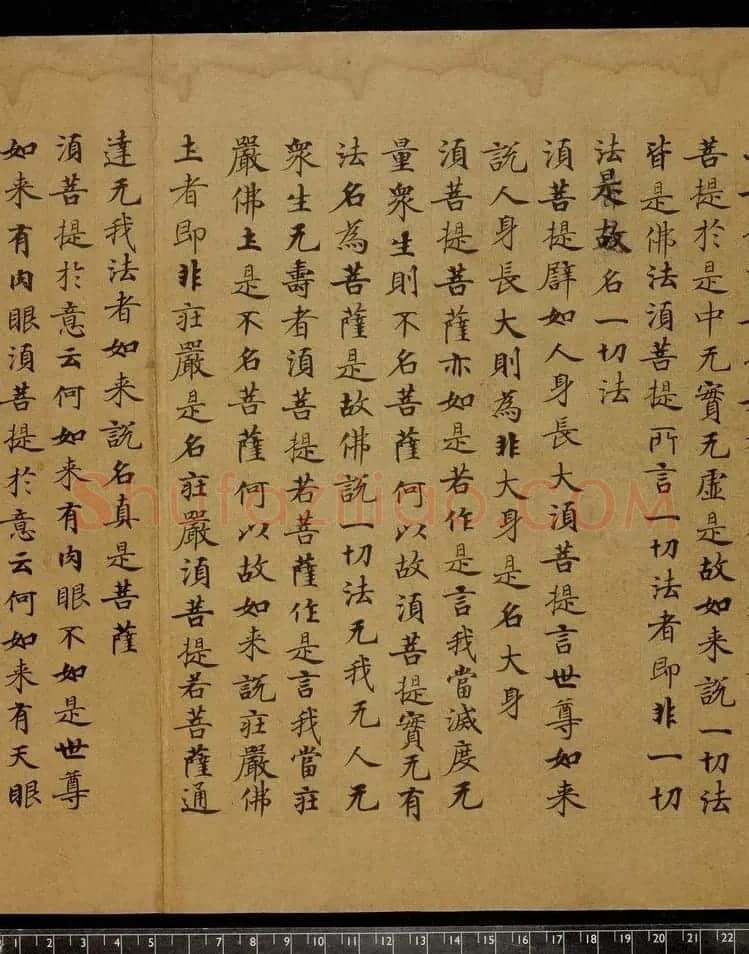 菩提於是中无實无虛是故如来說一切法
皆是佛法湏菩提所言一切法者即非一切
法是故名一切法
湏菩提辟如人身長大湏菩提言世尊如来
說人身長大則為非大身是名大身
湏菩提菩薩亦如是若作是言我當滅度无
量衆生則不名菩薩何以故湏菩提實无有
法名為菩薩是故佛說一切法无我无人无
衆生无壽者湏菩提若菩薩作是言我當莊
嚴佛土是不名菩薩何以故如来說莊嚴佛
土者即非莊嚴是名莊嚴湏菩提若菩薩通
達无我法者如来說名真是菩薩
湏菩提於意云何如来有肉眼不如是世尊
如来有肉眼湏菩提於意云何如来有天眼
Shufaziliao.COM
1 2 3 4 5 7 8 9 10 11 12 13 14 15 16 17 18 19 20 21 22